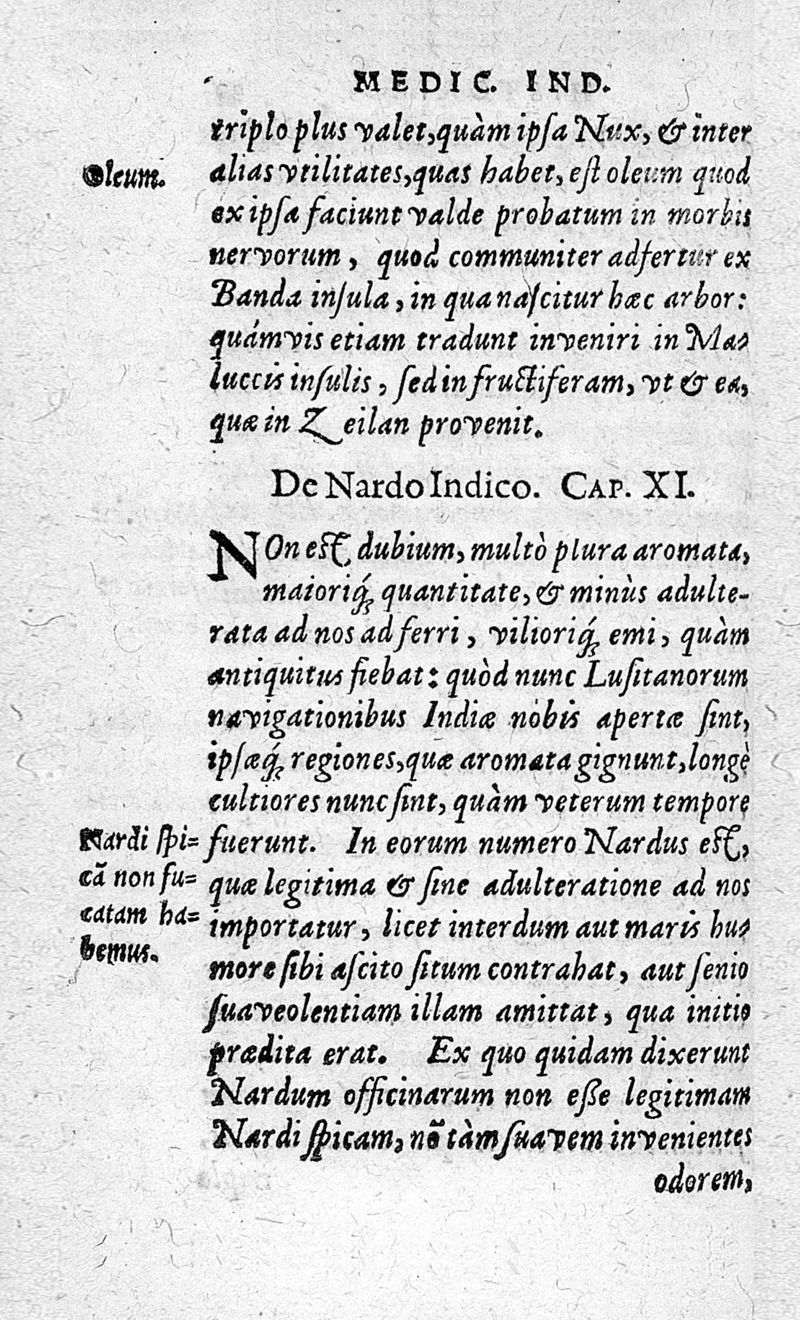 MEDIC. IND.
triplo plus valet, quàm ipſa Nux, & inter
Oleum.
alias vtilitates, quas habet, eſt oleum quod
ex ipſa faciunt valde probatum in morbis
nervorum, quod communiter adfertur ex
Banda inſula, in qua naſcitur hæc arbor:
quámvis etiam tradunt inveniri in Ma⸗
luccis inſulis, ſed infructiferam, vt & ea,
quæ in Zeilan provenit.
De Nardo Indico. CAP. XI.
NOn eſt dubium, multò plura aromata,
maioriq́ꝫ quantitate, & minùs adulte-
rata ad nos adferri, vilioriq́ꝫ emi, quàm
antiquitus fiebat: quòd nunc Luſitanorum
navigationibus Indiæ nobis apertæ ſint,
ipſæq́ꝫ regiones, quæ aromata gignunt, longè
cultiores nunc ſint, quàm veterum tempore
fuerunt. In eorum numero Nardus eſt,
quæ legitima & ſine adulteratione ad nos
importatur, licet interdum aut maris hu⸗
more ſibi aſcito ſitum contrahat, aut ſenio
ſuaveolentiam illam amittat, qua initio
prædita erat. Ex quo quidam dixerunt
Nardum officinarum non eſſe legitimam
Nardi ſpicam, nō tàm ſuavem invenientes
odorem,
Nardi ſpi⸗
cā non fu⸗
catam ha⸗
bemus.